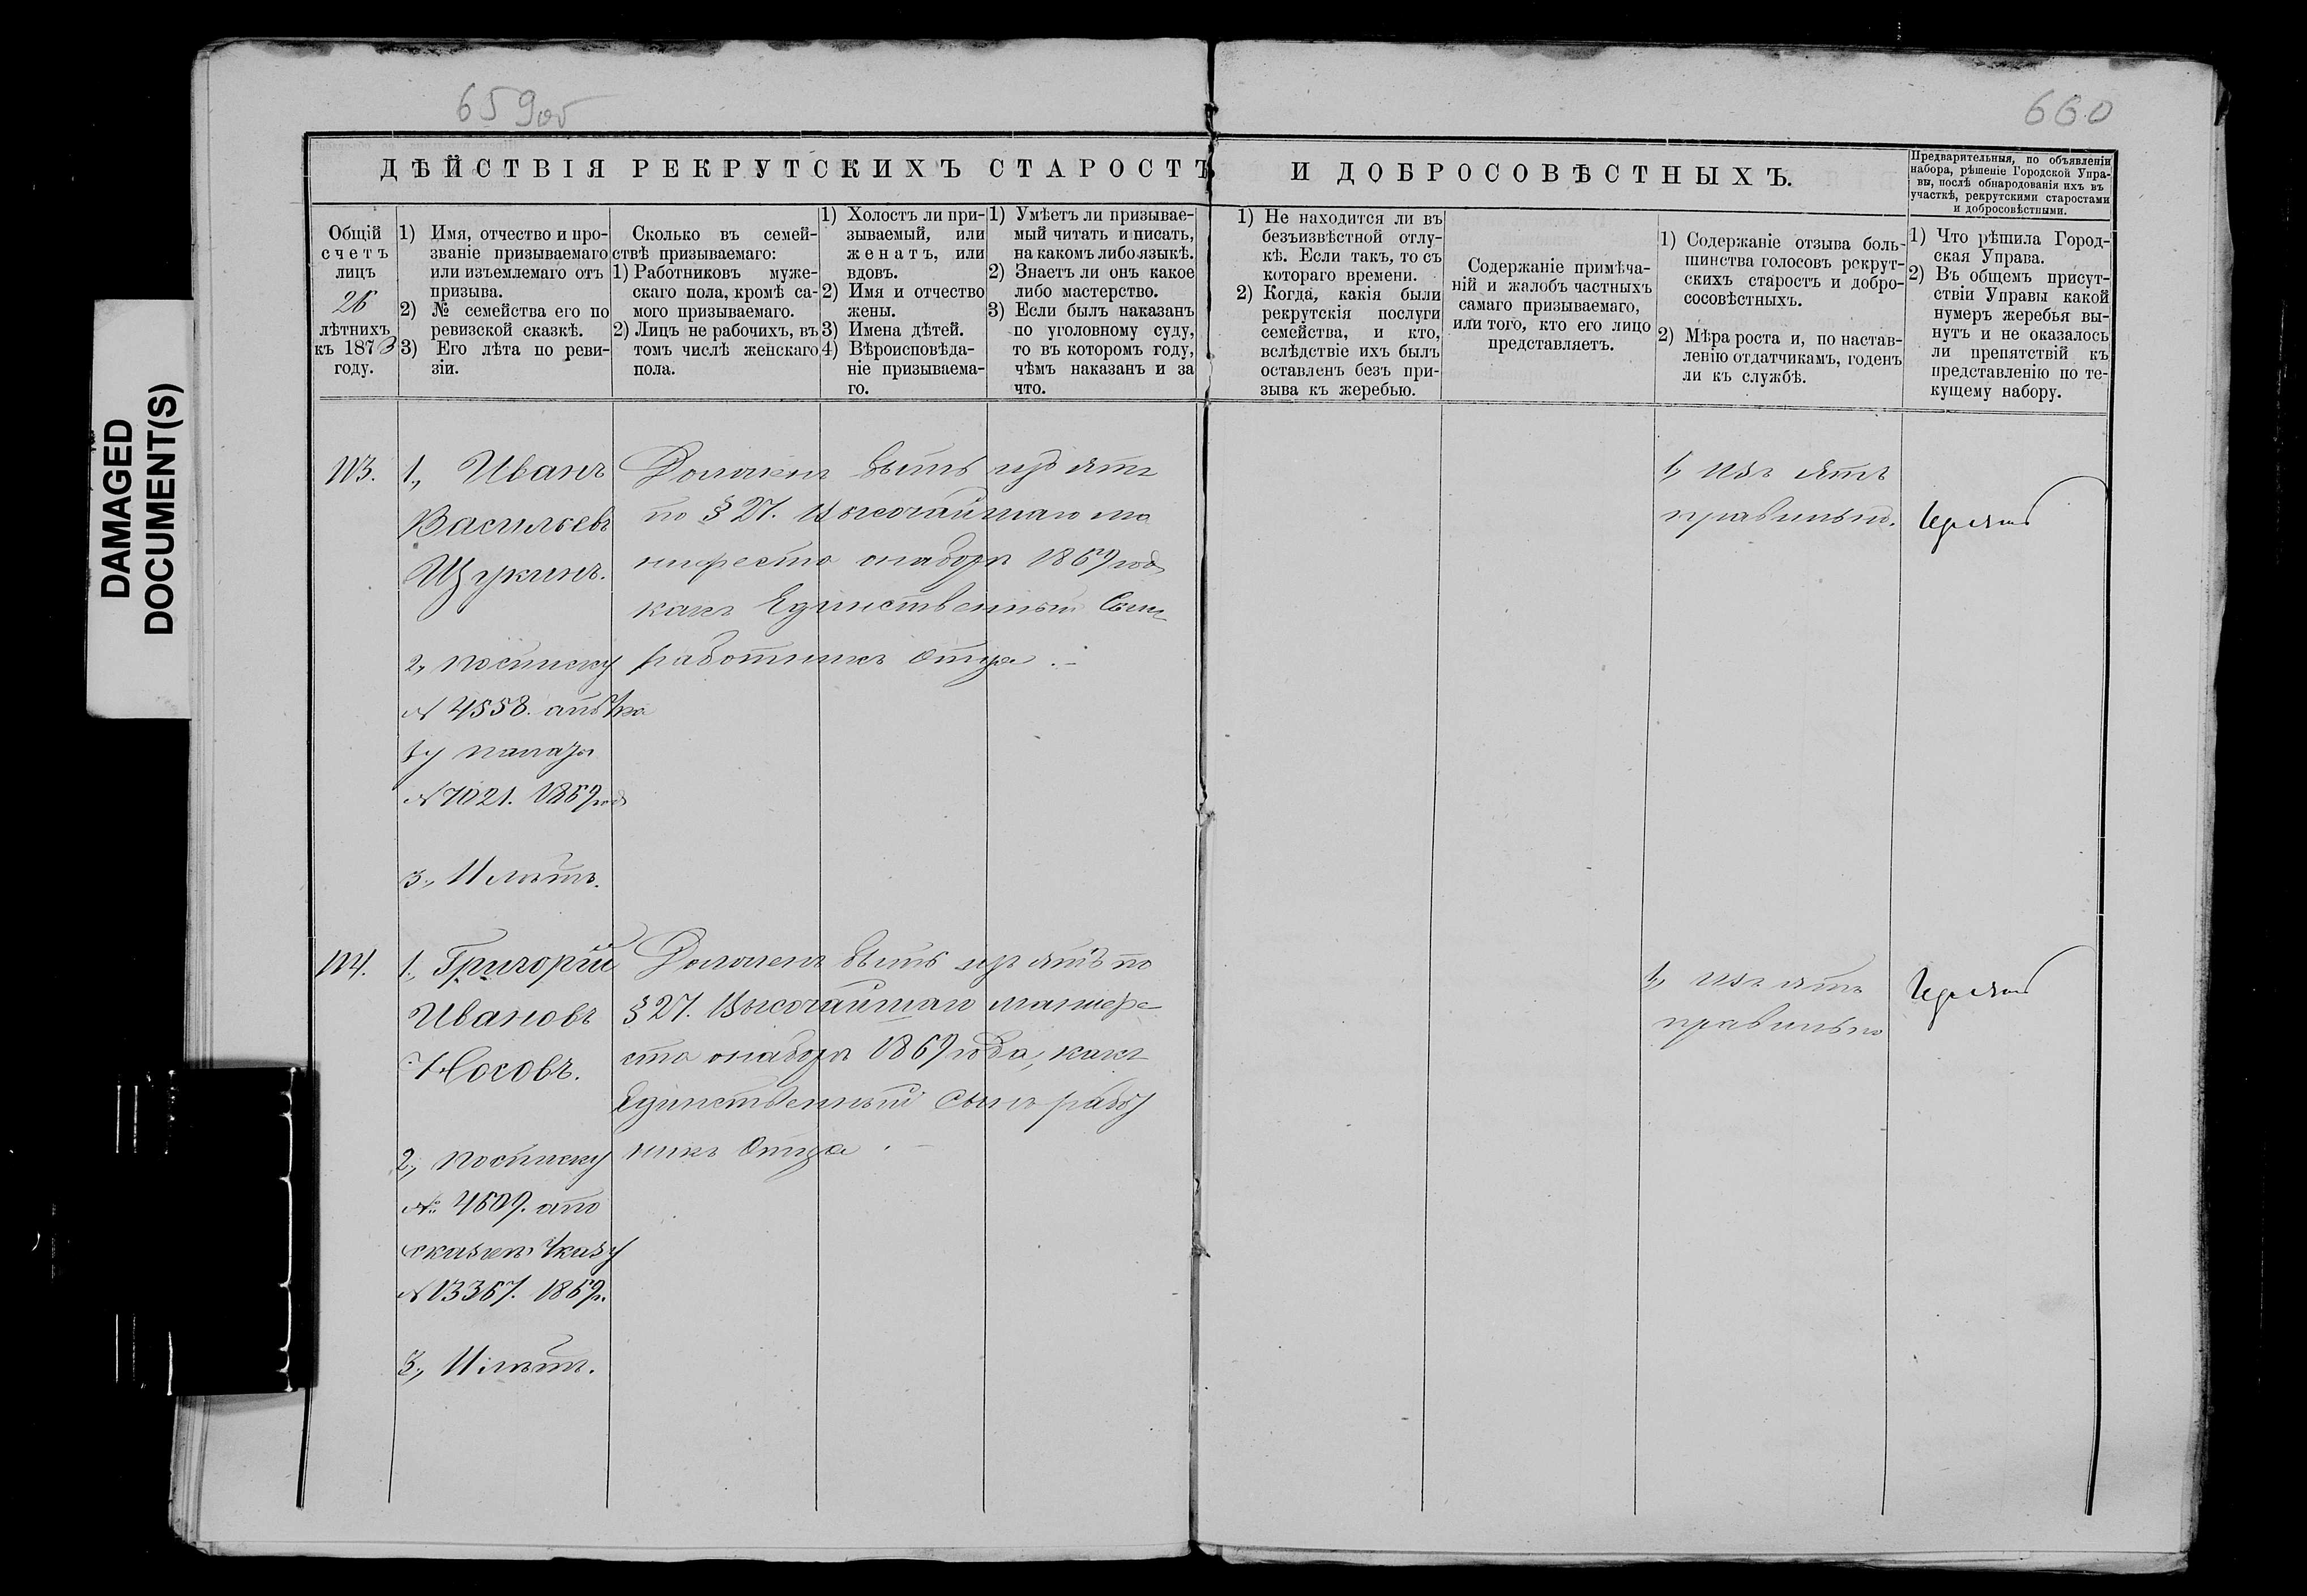 DAMAGED
DOCUMENT(S)
659об
660
ДѢЙСТВІЯ РЕКРУТСКИХЪ СТАРОСТЪ И ДОБРОСОВѢСТНЫХЪ.
Предварительныя, по объявленіи
набора, рѣшеніе Городской Упра-
вы, послѣ обнародованія ихъ въ
участкѣ, рекрутскими старостами
и добросовѣстными.
Общій
счетъ
лицъ
26
лѣтнихъ
къ 1873
году.
1) Имя, отчество и про-
званіе призываемаго
или изъемлемаго отъ
призыва.
2) № семейства его по
ревизской сказкѣ.
3) Его лѣта по реви-
зіи.
Сколько въ семей-
ствѣ призываемаго:
1) Работниковъ муже-
скаго пола, кромѣ са-
мого призываемаго.
2) Лицъ не рабочихъ, въ
томъ числѣ женскаго
пола.
1) Холостъ ли при-
зываемый, или
женатъ, или
вдовъ.
2) Имя и отчество
жены.
3) Имена дѣтей.
4) Вѣроисповѣда-
ніе призываема-
го.
1) Умѣетъ ли призывае-
мый читать и писать,
на какомъ либо языкѣ.
2) Знаетъ ли онъ какое
либо мастерство.
3) Если былъ наказанъ
по уголовному суду,
то въ которомъ году,
чѣмъ наказанъ и за
что.
1) Не находится ли въ
безъизвѣстной отлу-
кѣ. Если такъ, то съ
котораго времени.
2) Когда, какія были
рекрутскія послуги
семейства, и кто,
вслѣдствіе ихъ былъ
оставленъ безъ при-
зыва къ жеребью.
Содержаніе примѣча-
ній и жалобъ частныхъ
самаго призываемаго,
или того, кто его лицо
представляетъ.
1) Содержаніе отзыва боль-
шинства голосовъ рекрут-
скихъ старостъ и добро-
сосовѣстныхъ.
2) Мѣра роста и, по настав-
ленію отдатчикамъ, годенъ
ли къ службѣ.
1) Что рѣшила Город-
ская Управа.
2) Въ общемъ присут-
ствіи Управы какой
нумеръ жеребья вы-
нутъ и не оказалось
ли препятствій къ
представленію по те-
кущему набору.
113.
1., Иванъ
Васильевъ
Щукинъ.
2, по списку
№ 4558.
№ 7021. 1869 год
3., 11 лѣтъ.
Долженъ быть изъятъ
по § 27. Высочайшаго ма
нифеста о наборѣ 1869 год
какъ Единственный Сынъ
работникъ Отца.
1, Изъятъ
правильно.
Изъять
114.
1., Григорій
Ивановъ
Носовъ.
2., по списку
№ 4609. апо
сказкѣ Указу
№ 13367. 1869г.
3., 11 лѣтъ.
Долженъ быть изъятъ по
§ 27. Высочайшаго манифе
ста о наборѣ 1869 года, какъ
Единственный Сынъ работ
никъ Отца.
1, Изъятъ
правильно
Изъять